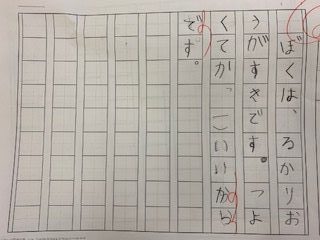 ぼくは、るかりお
うがすきです。つよ
くてかっこいいから
です。